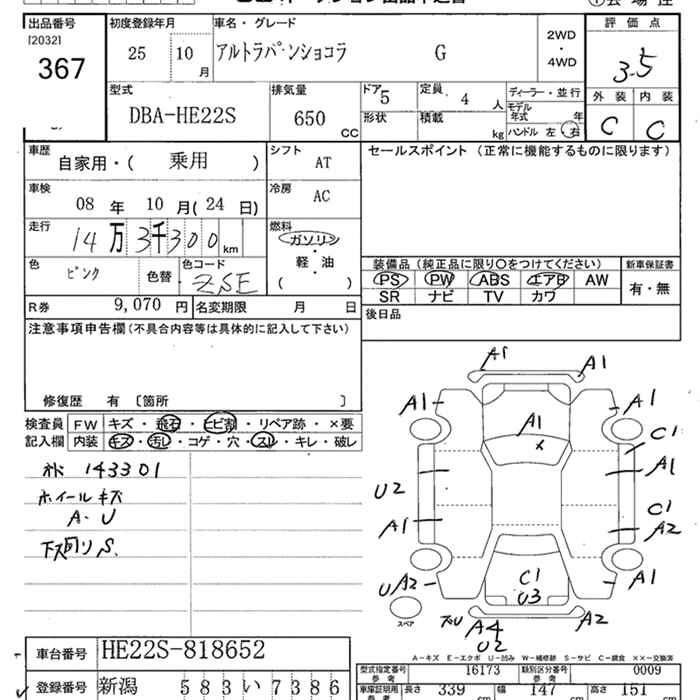 出品番号 初度登録年月 車名・グレード 評価点
[2032]
367
25 10月 アルトラパンショコラ G
2WD・4WD
3.5
型式 DBA-HE22S
排気量 650 CC
ドア 5 定員 4 人
形状 積載 kg
ディーラー・並行
モデル年式 年
ハンドル 左 右
外装 内装
C C
車歴 自家用・( 乗用 )
シフト AT
セールスポイント (正常に機能するものに限ります)
車検 08年 10月(24日)
冷房 AC
走行 14万3千300km
燃料 ガソリン 軽・油 ( )
色 ピンク 色替 色コード ZSE
装備品(純正品に限り○をつけてください) 新車保証書
PS PW ABS エアB AW 有・無
SR ナビ TV カワ
R券 9,070円 名変期限 月 日
後日品
注意事項申告欄(不具合内容等は具体的に記入して下さい)
修復歴 有 [箇所 ]
検査員記入欄
FW キズ・飛石・ヒビ割・リペア跡・×要
内装 キズ・汚レ・コゲ・穴・スレ・キレ・破レ
143301
ホイールキズ
A.U
下回りS.
A1 A1
A1 A1 A1
C1
A1
U2
C1
A1 A2
UA2 A1
C1
U3
スペア
A4 A2
U2
A-キズ E-エクボ U-凹み W-補修跡 S-サビ C-腐食 XX-交換済
車台番号 HE22S-818652
型式指定番号 参考 16173 類別区分番号 参考 0009
登録番号 新潟 583い7386
車庫証明用 参考 長さ 339 cm 幅 147 cm 高さ 151 cm